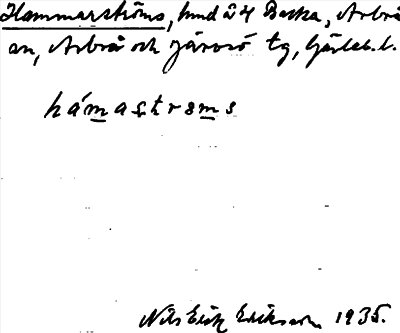 Hammarströms, hmd å 4 Backa, Arbrå
sn, Arbrå och Järvsö tg, Gävleb. l.
hámastrəms
Nils Erik Eriksson 1935.